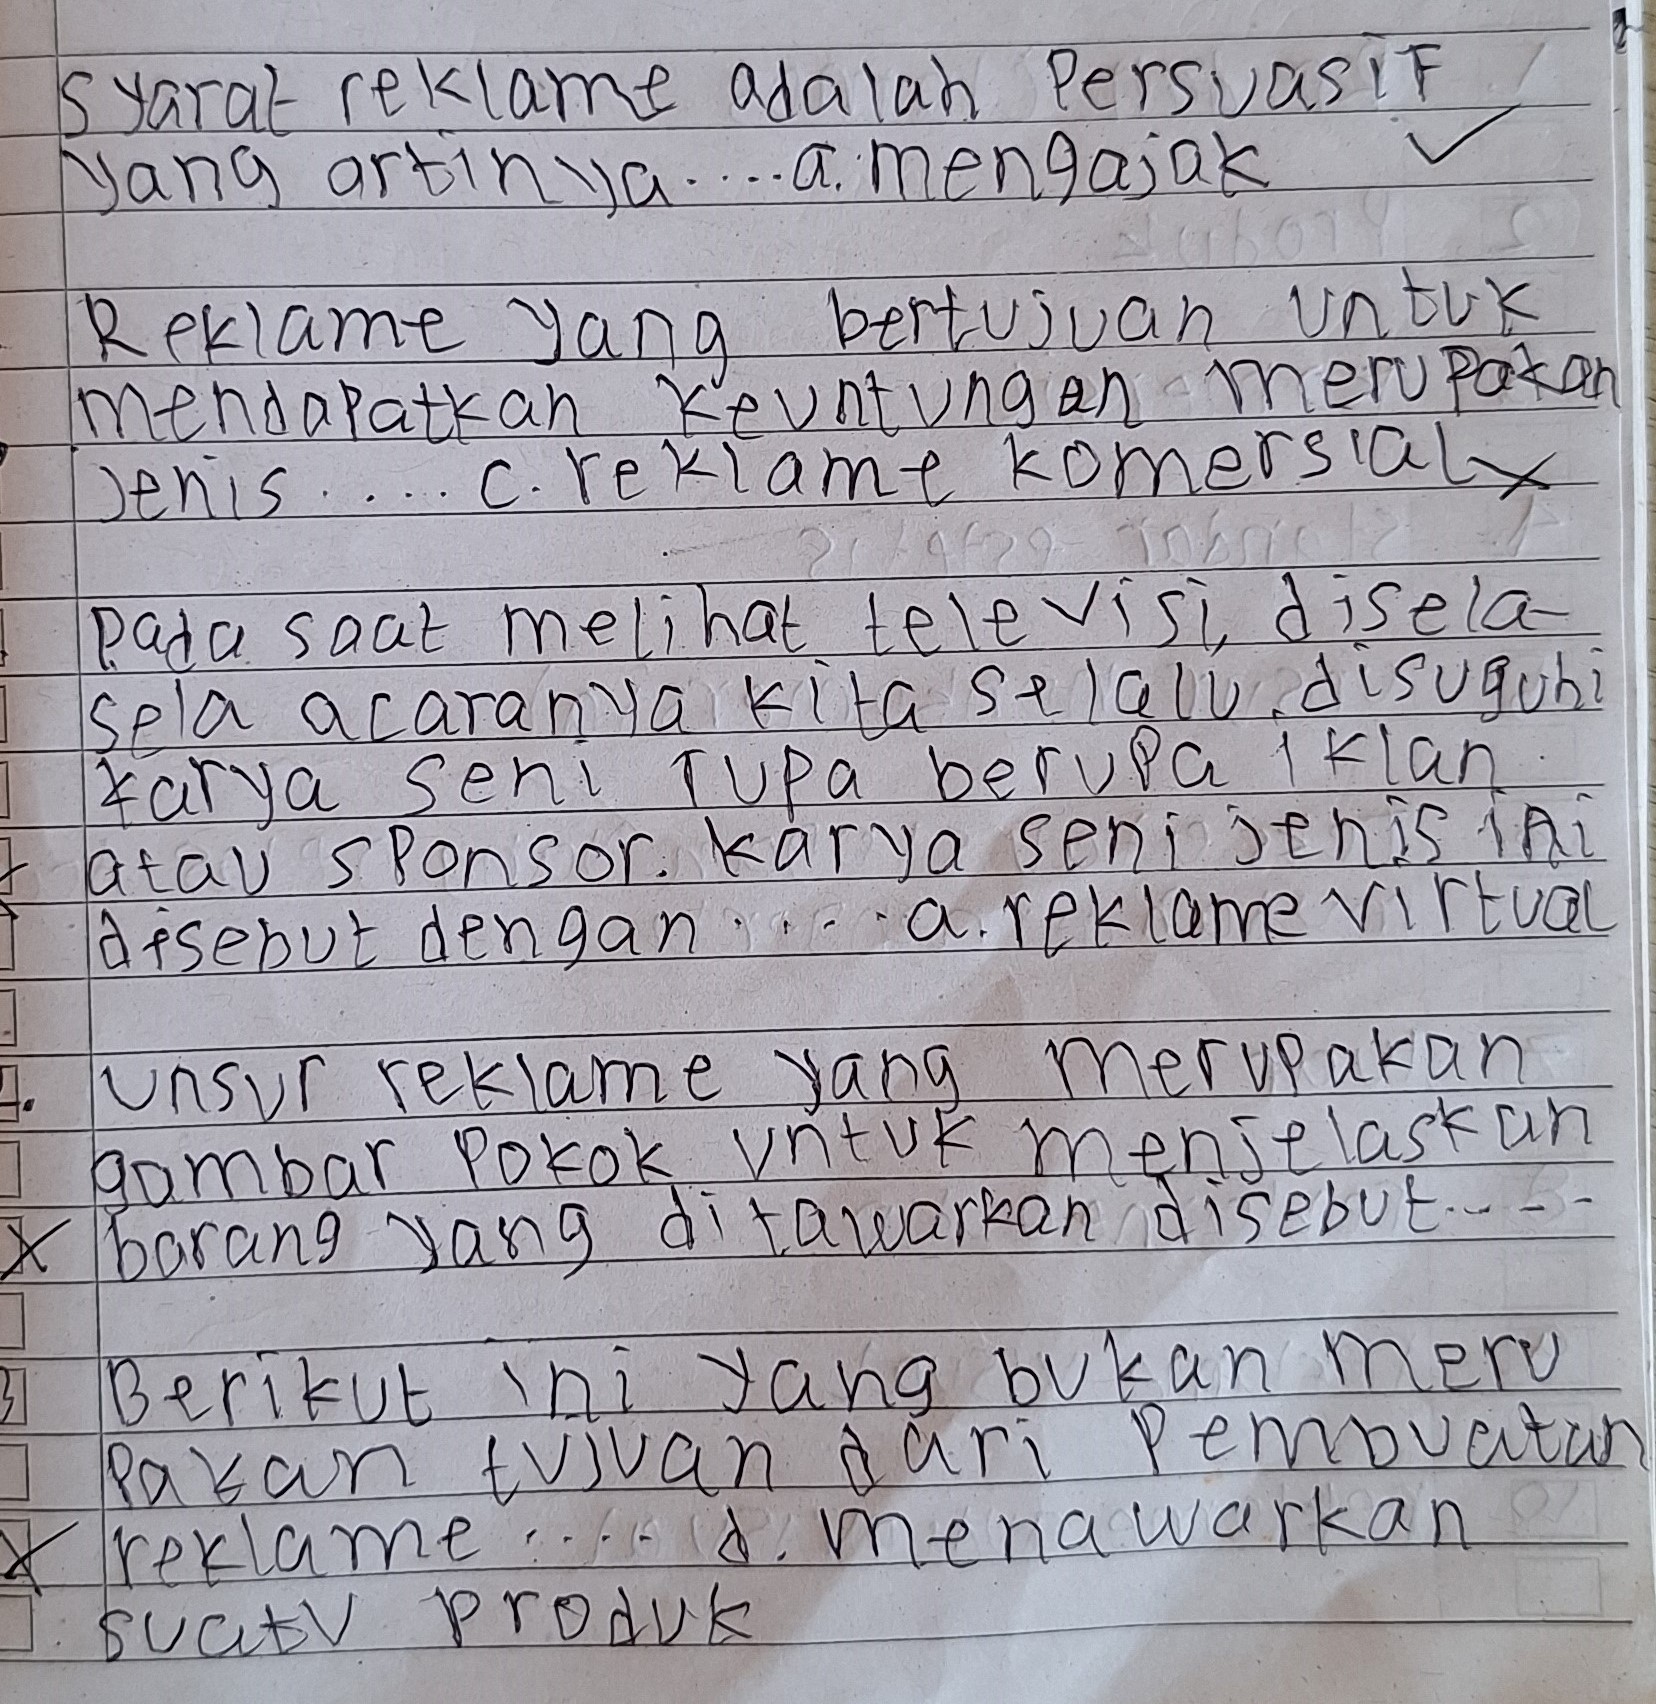 Syarat reklame adalah Persuasif
yang artinya....a.mengajak
Reklame yang bertujuan untuk
mendapatkan keuntungan merupakan
jenis.....c.reklame komersial
Pada saat melihat televisi, disela-
sela acaranya kita selalu disuguhi
karya seni rupa berupa iklan
atau sponsor. karya seni jenis ini
disebut dengan.....a.reklame virtual
unsur reklame yang merupakan
gambar pokok untuk menjelaskan
barang yang ditawarkan disebut.....
Berikut ini yang bukan meru
pakan tujuan dari Pembuatan
reklame.....d.menawarkan
suatu produk